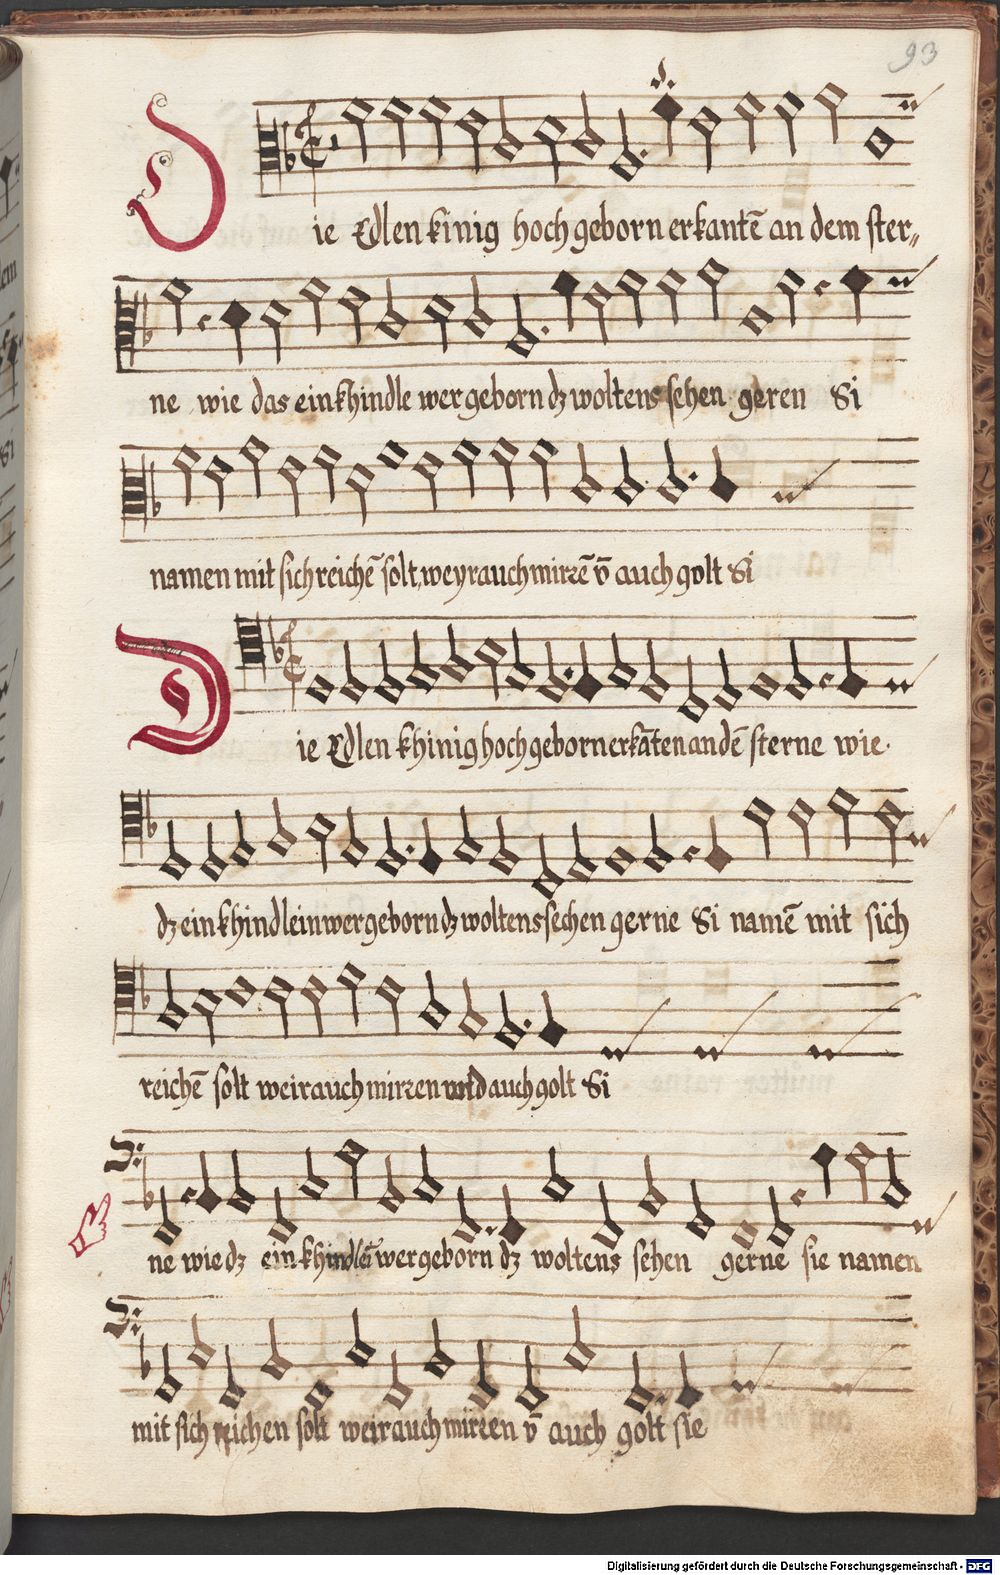 93
Die Edlen kinig hoch geborn erkantē an dem ster„
ne wie das ein khindle wer geborn dz woltens sehen geren Si
namen mit sich reichē solt weyrauch mirrē v̄ auch golt Si
Die Edlen khinig hoch geborn erkāten an dē sterne wie
dz ein khindlein wer geborn dz woltens sechen gerne Si namē mit sich
reichē solt weirauch mirren vnd auch golt Si
ne wie dz ein khindlē wer geborn dz woltens sehen gerne sie namen
mit sich reichen solt weirauch mirren v̄ auch golt sie
Digitalisierung gefördert durch die Deutsche Forschungsgemeinschaft - DFG